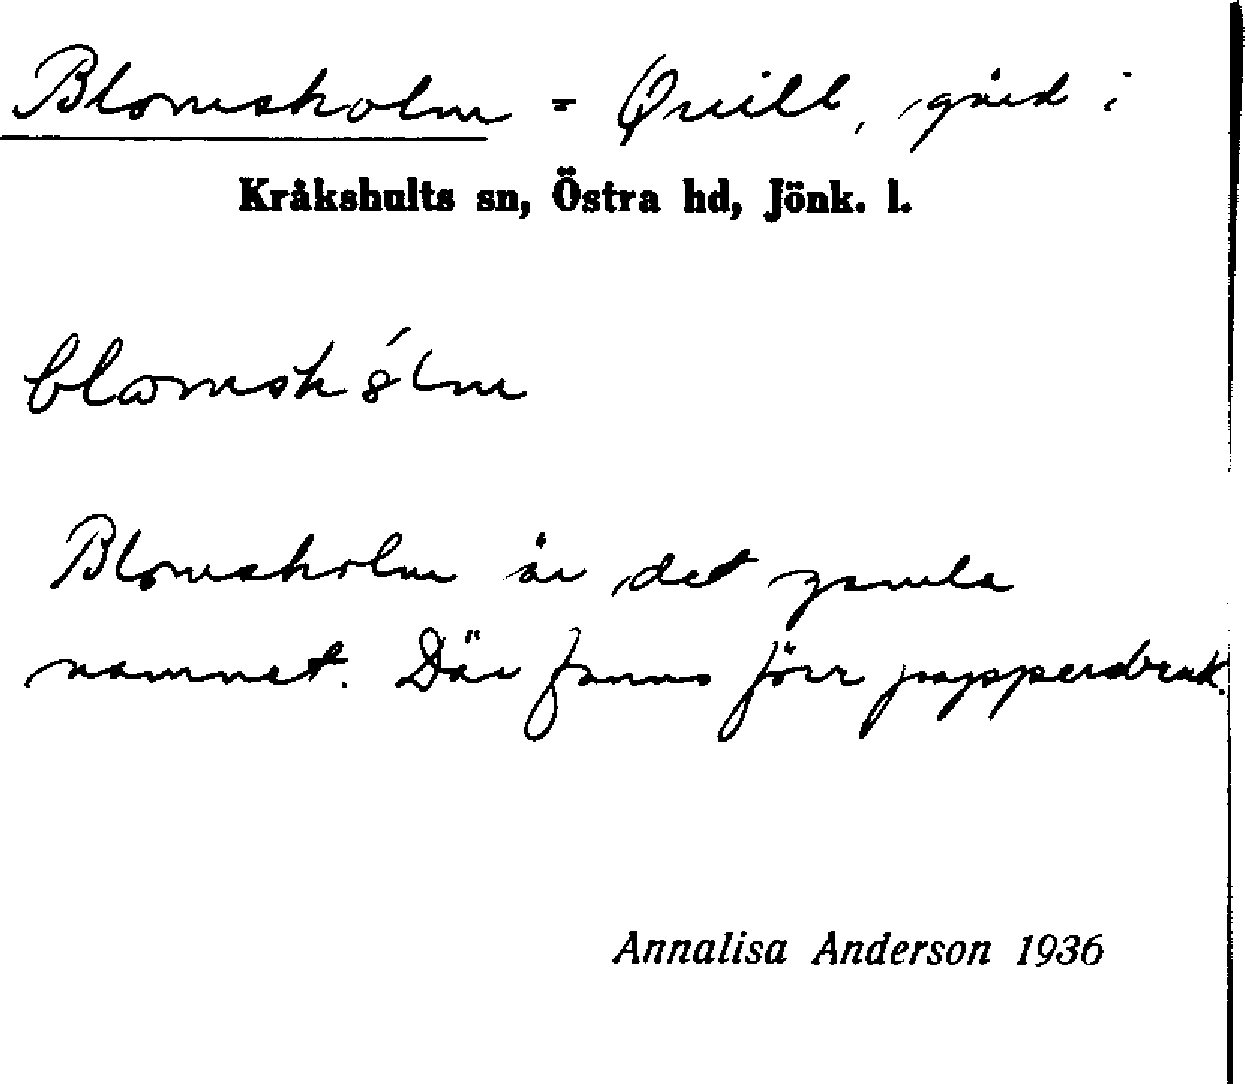 Blomsholm = Qvill, gård i
Kråkshults sn, Östra hd, Jönk. l.
Blomsholm är det gamla
namnet. Där fanns förr pappersbruk.
Annalisa Anderson 1936